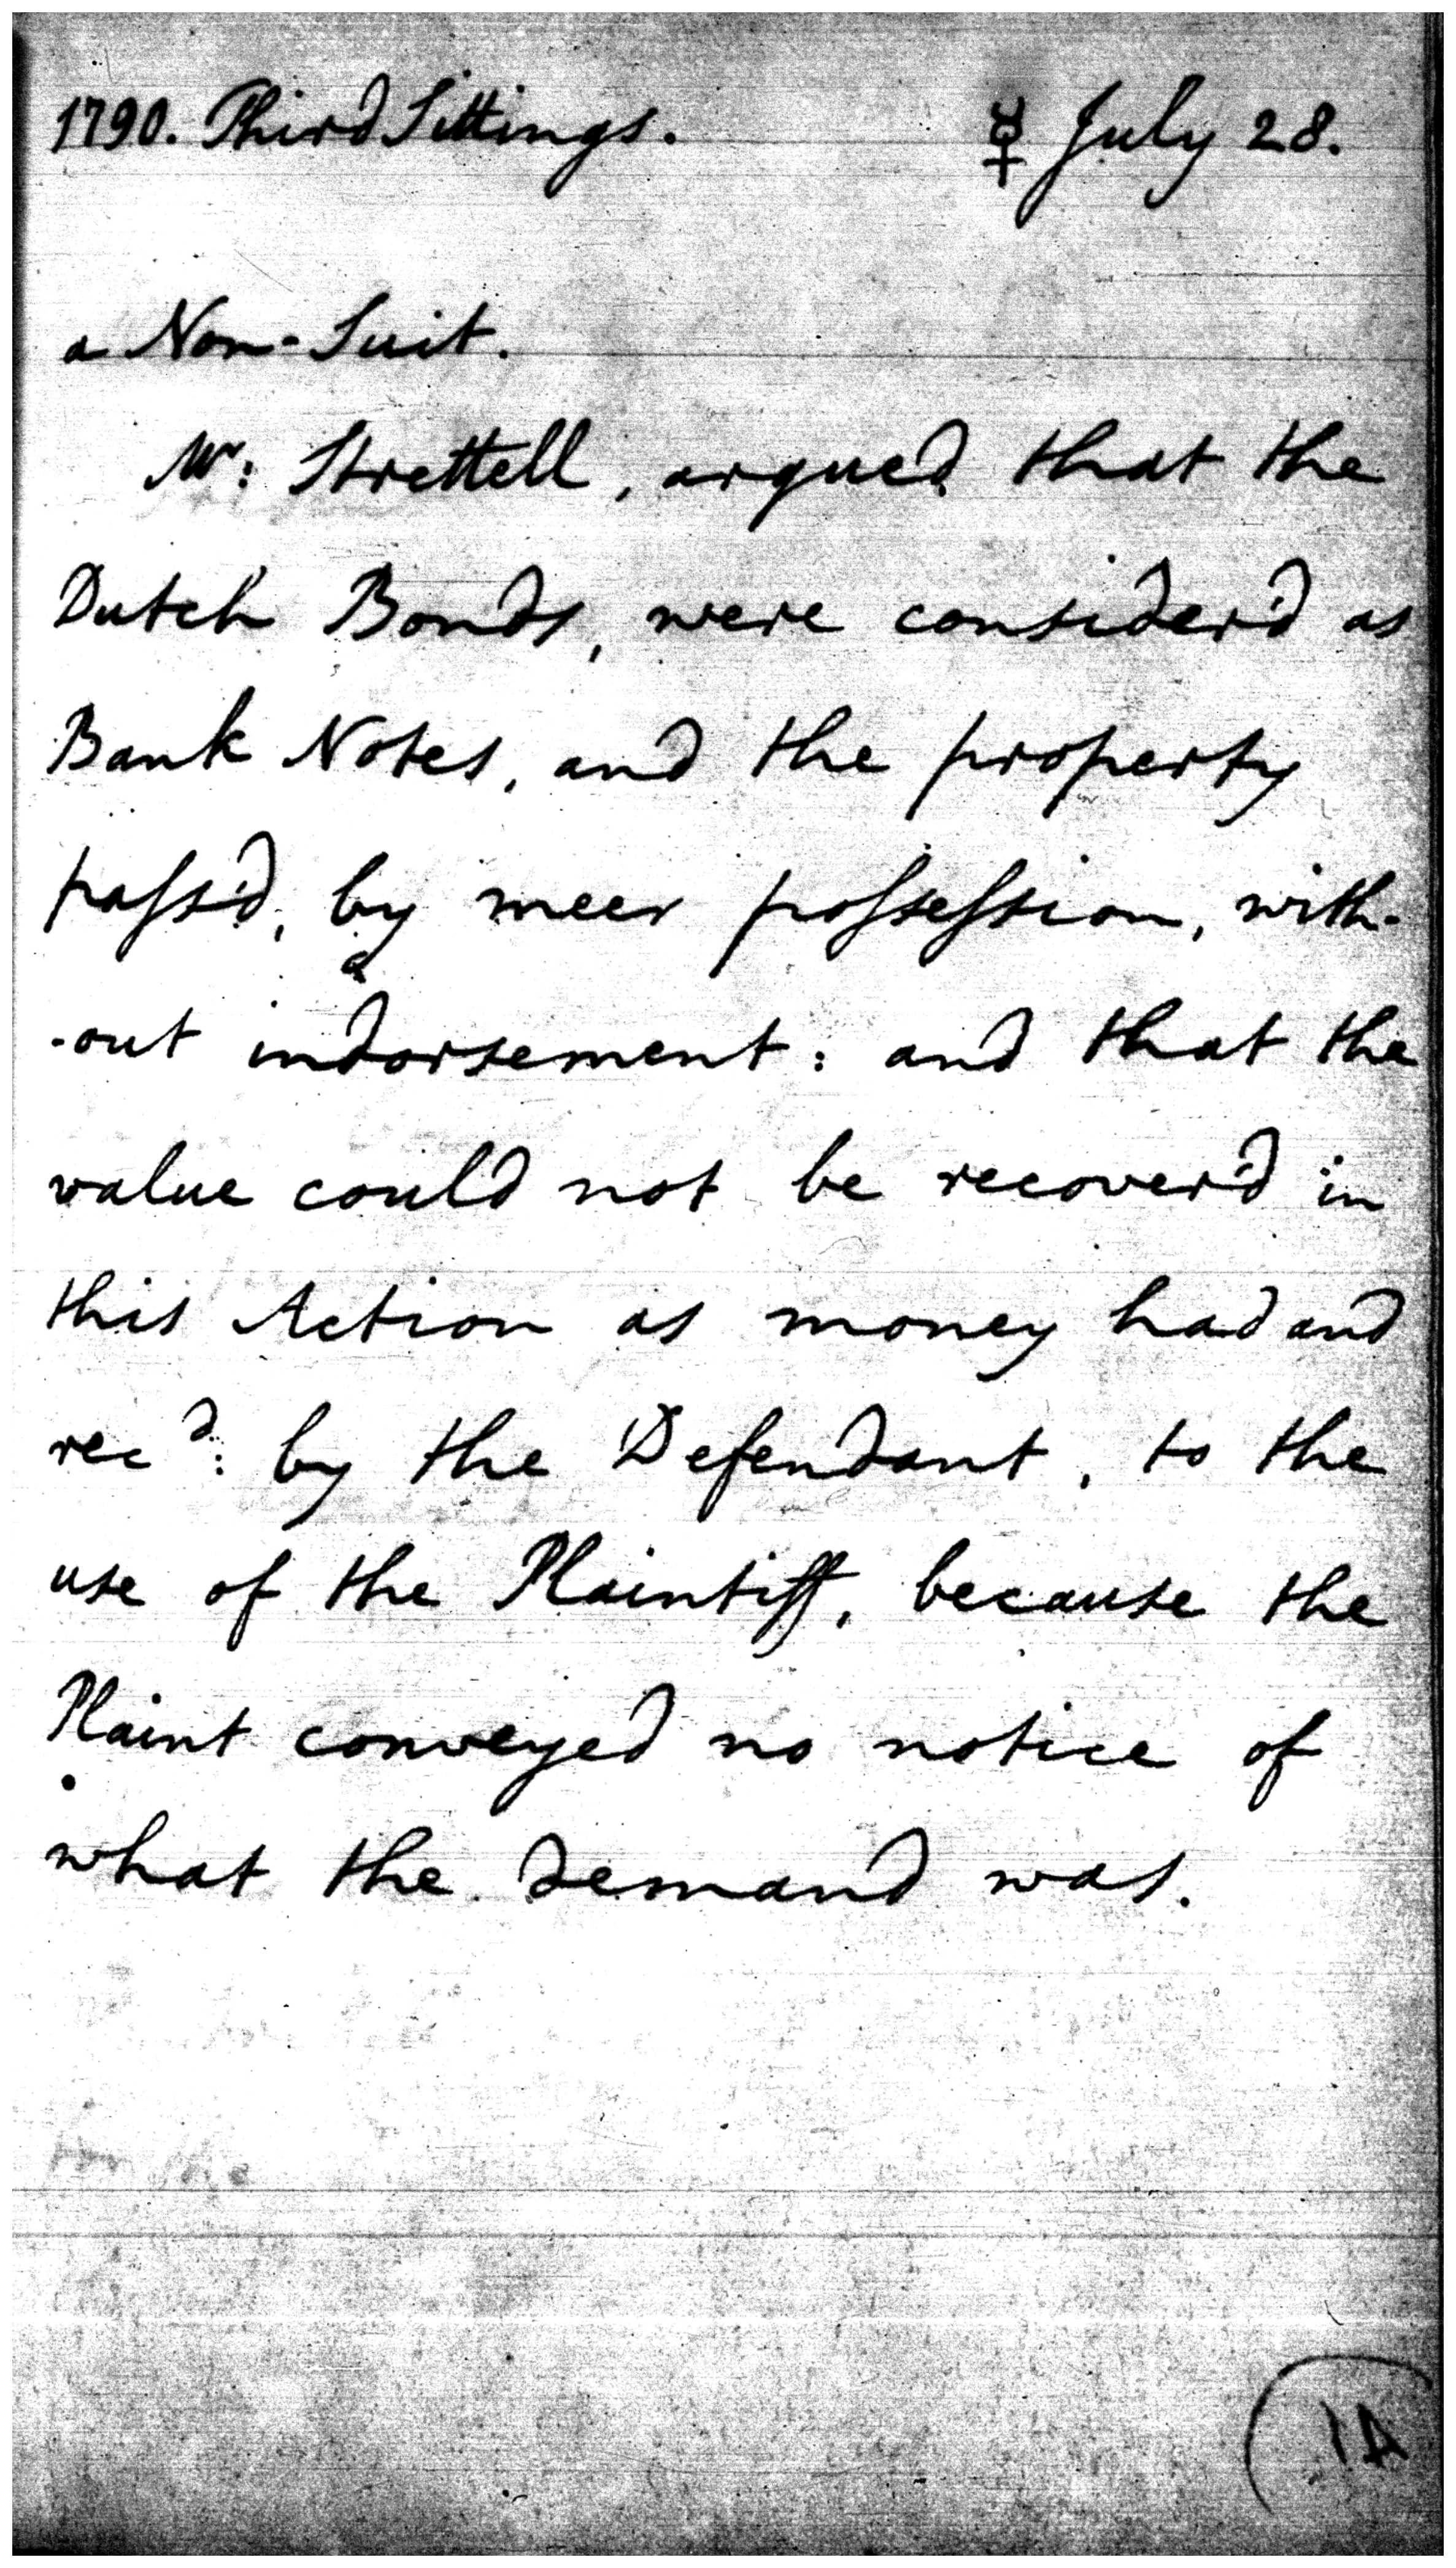 1790. Third Sittings. ☿ July 28.
a Non-Suit.
Mr: Strettell, argued that the
Dutch Bonds, were consider'd as
Bank Notes, and the property
pass'd, by meer possession, with-
a
-out indorsement: and that the
value could not be recover'd in
this Action as money had and
recd: by the Defendant, to the
use of the Plaintiff, because the
Plaint conveyed no notice of
what the demand was.